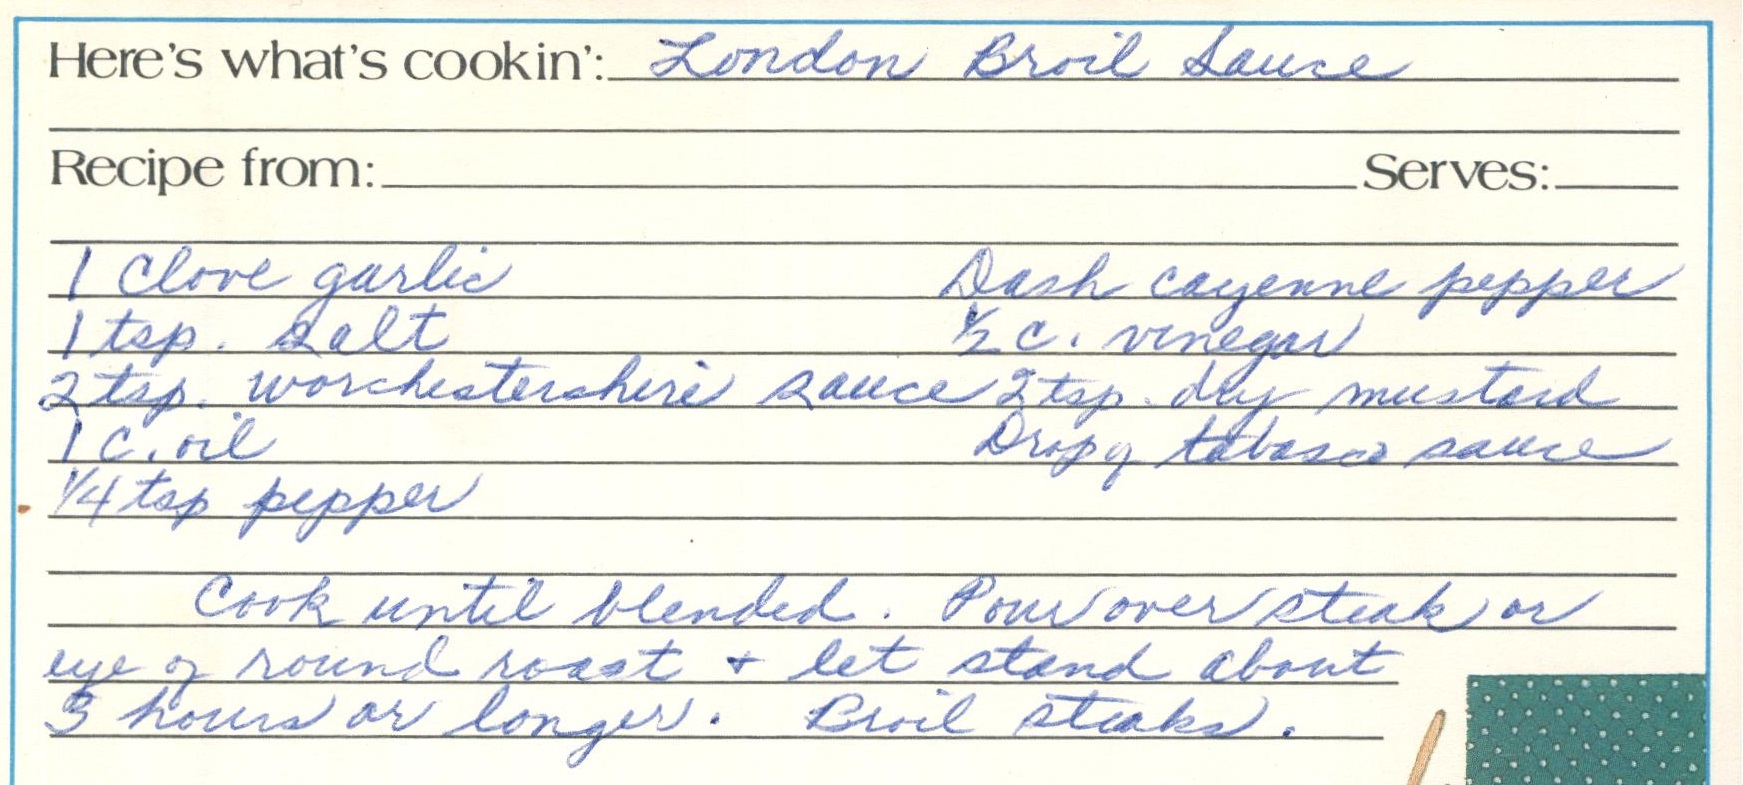 Here's what's cookin': London Broil Sauce
Recipe from: Serves:
1 Clove garlic Dash cayenne pepper
1 tsp. salt ½ c. vinegar
2 tsp. worchestershire sauce 2 tsp. dry mustard
1 c. oil Drop of tabasco sauce
¼ tsp pepper
Cook until blended. Pour over steak or
eye of round roast + let stand about
3 hours or longer. Broil steaks.